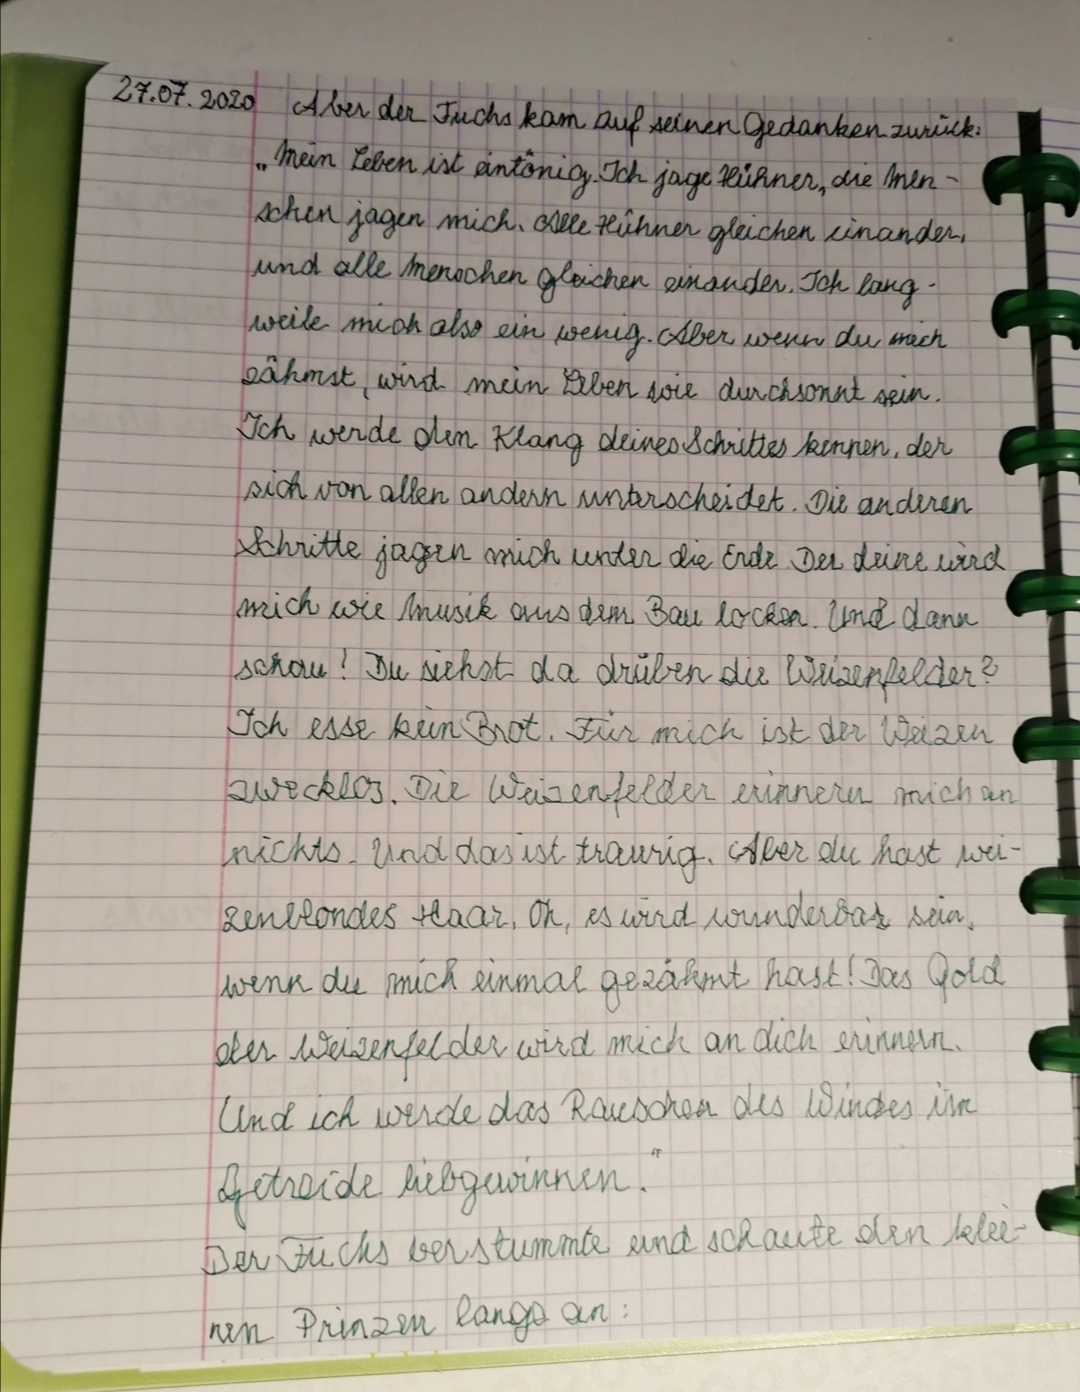 27.07.2020 Aber der Fuchs kam auf seinen Gedanken zurück:
„Mein Leben ist eintönig. Ich jage Hühner, die Men-
schen jagen mich. Alle Hühner gleichen einander,
und alle Menschen gleichen einander. Ich lang-
weile mich also ein wenig. Aber wenn du mich
zähmst, wird mein Leben wie durchsonnt sein.
Ich werde den Klang deines Schrittes kennen, der
sich von allen andern unterscheidet. Die anderen
Schritte jagen mich unter die Erde. Der deine wird
mich wie Musik aus dem Bau locken. Und dann
schau! Du siehst da drüben die Weizenfelder?
Ich esse kein Brot. Für mich ist der Weizen
zwecklos. Die Weizenfelder erinnern mich an
nichts. Und das ist traurig. Aber du hast wei-
zenblondes Haar. Oh, es wird wunderbar sein,
wenn du mich einmal gezähmt hast! Das Gold
der Weizenfelder wird mich an dich erinnern.
Und ich werde das Rauschen des Windes im
Getreide liebgewinnen."
Der Fuchs verstummte und schaute den klei-
nen Prinzen lange an: